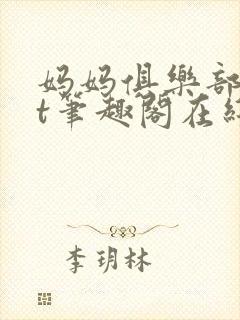 妈妈俱樂部
t筆趣阁在
李玥林